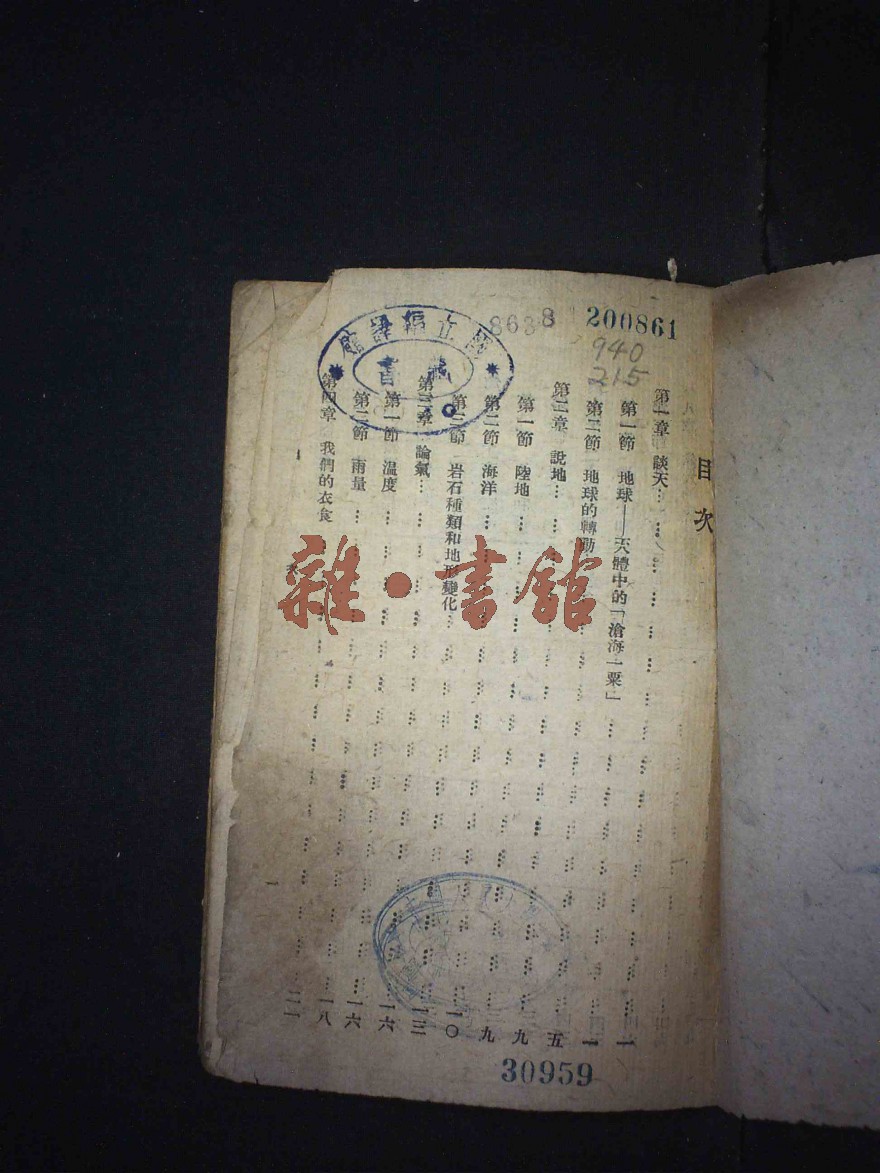 200861
8638
940
215
國立編譯館
藏書
目次
第一章 談天…………一
第一節 地球——天體中的「滄海一粟」…………一
第二節 地球的轉動…………五
第二章 說地…………九
第一節 陸地…………九
第二節 海洋…………一〇
第三節 岩石種類和地形變化…………一三
第三章 論氣…………一六
第一節 溫度…………一六
第二節 雨量…………一八
第四章 我們的衣食…………二一
一
30959
雜·書館